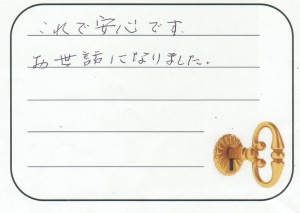 これで安心です.
お世話になりました.